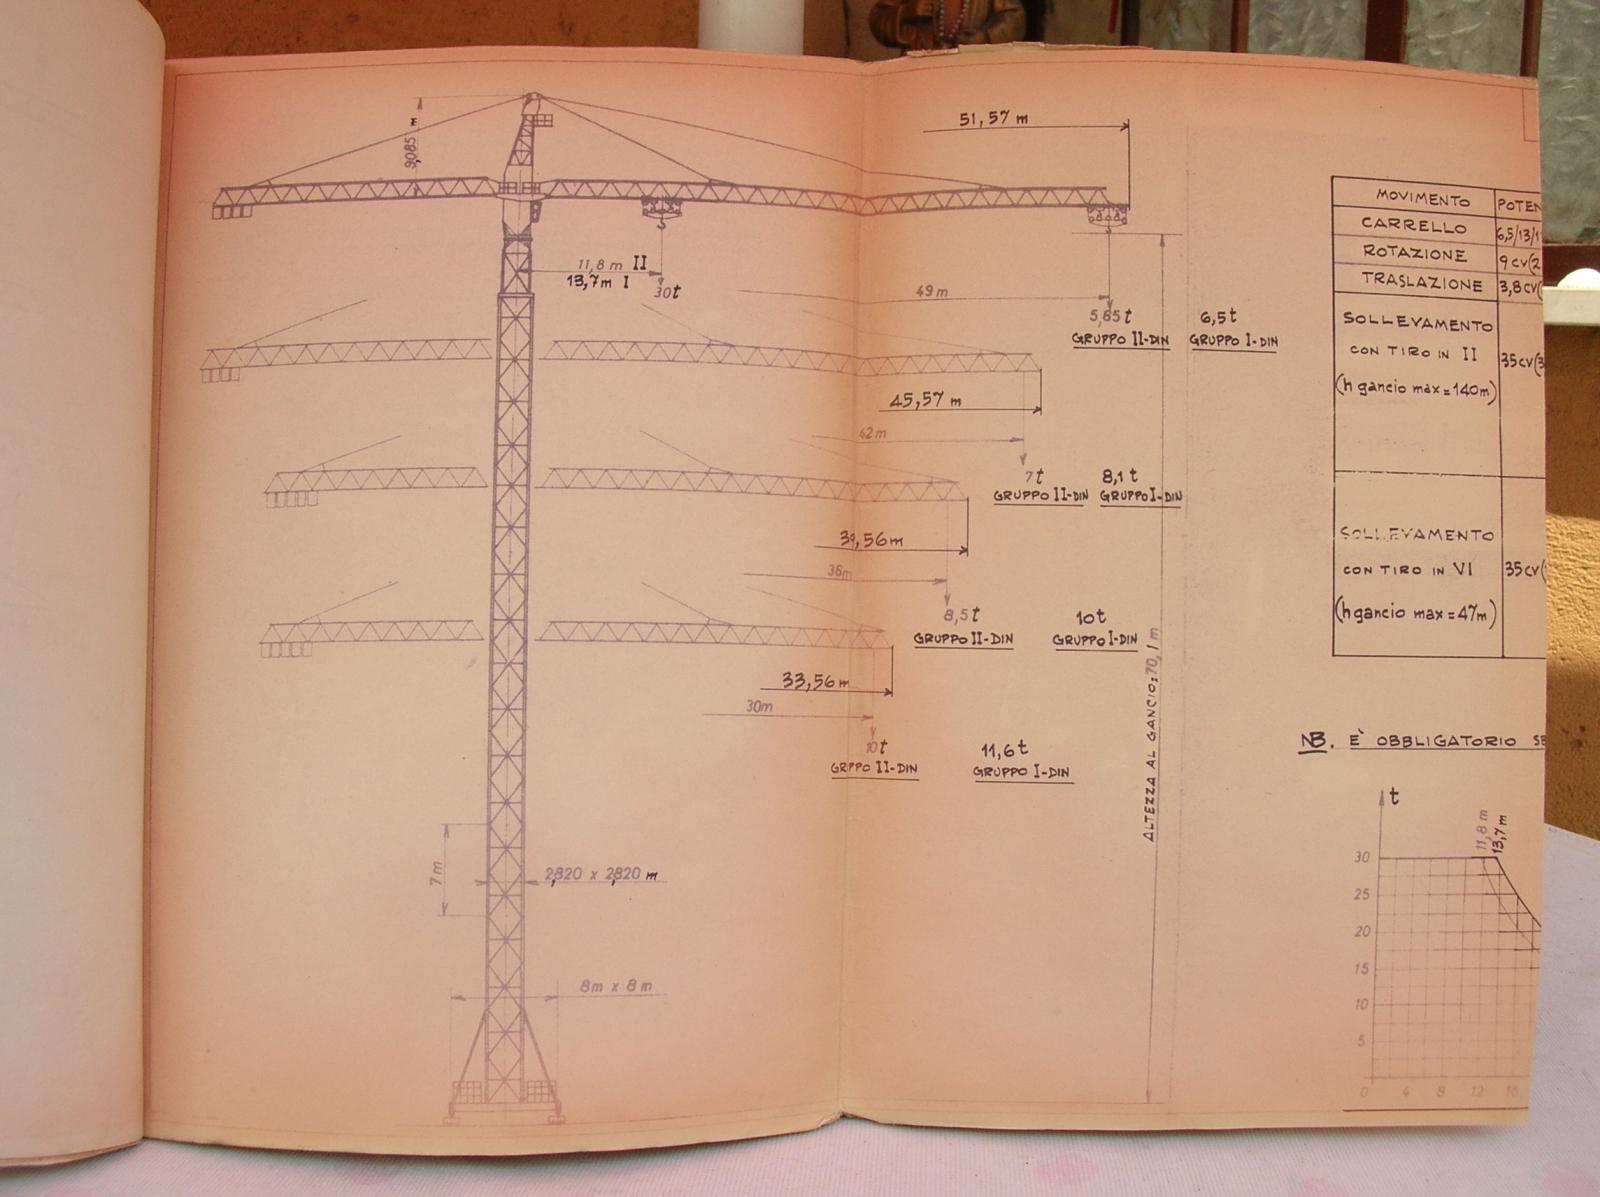 51,57 m
9,085 m
11,8 m II
13,7m I
30t
49 m
5,65 t
GRUPPO II-DIN
6,5t
GRUPPO I-DIN
45,57 m
42 m
7 t
GRUPPO II-DIN
8,1 t
GRUPPO I-DIN
39,56 m
36m
8,5 t
GRUPPO II-DIN
10t
GRUPPO I-DIN
33,56 m
30m
10t
GRPPO II-DIN
11,6 t
GRUPPO I-DIN
ALTEZZA AL GANCIO: 70,1 m
7 m
2,820 x 2,820 m
8m x 8m
MOVIMENTO POTEN
CARRELLO 6,5/13/1
ROTAZIONE 9 CV(2
TRASLAZIONE 3,8CV(
SOLLEVAMENTO
CON TIRO IN II 35CV(3
(h gancio max=140m)
SOLLEVAMENTO
CON TIRO IN VI 35CV(
(h gancio max=47m)
NB. È OBBLIGATORIO SE
t
11,8 m
13,7 m
30
25
20
15
10
5
0 4 8 12 16